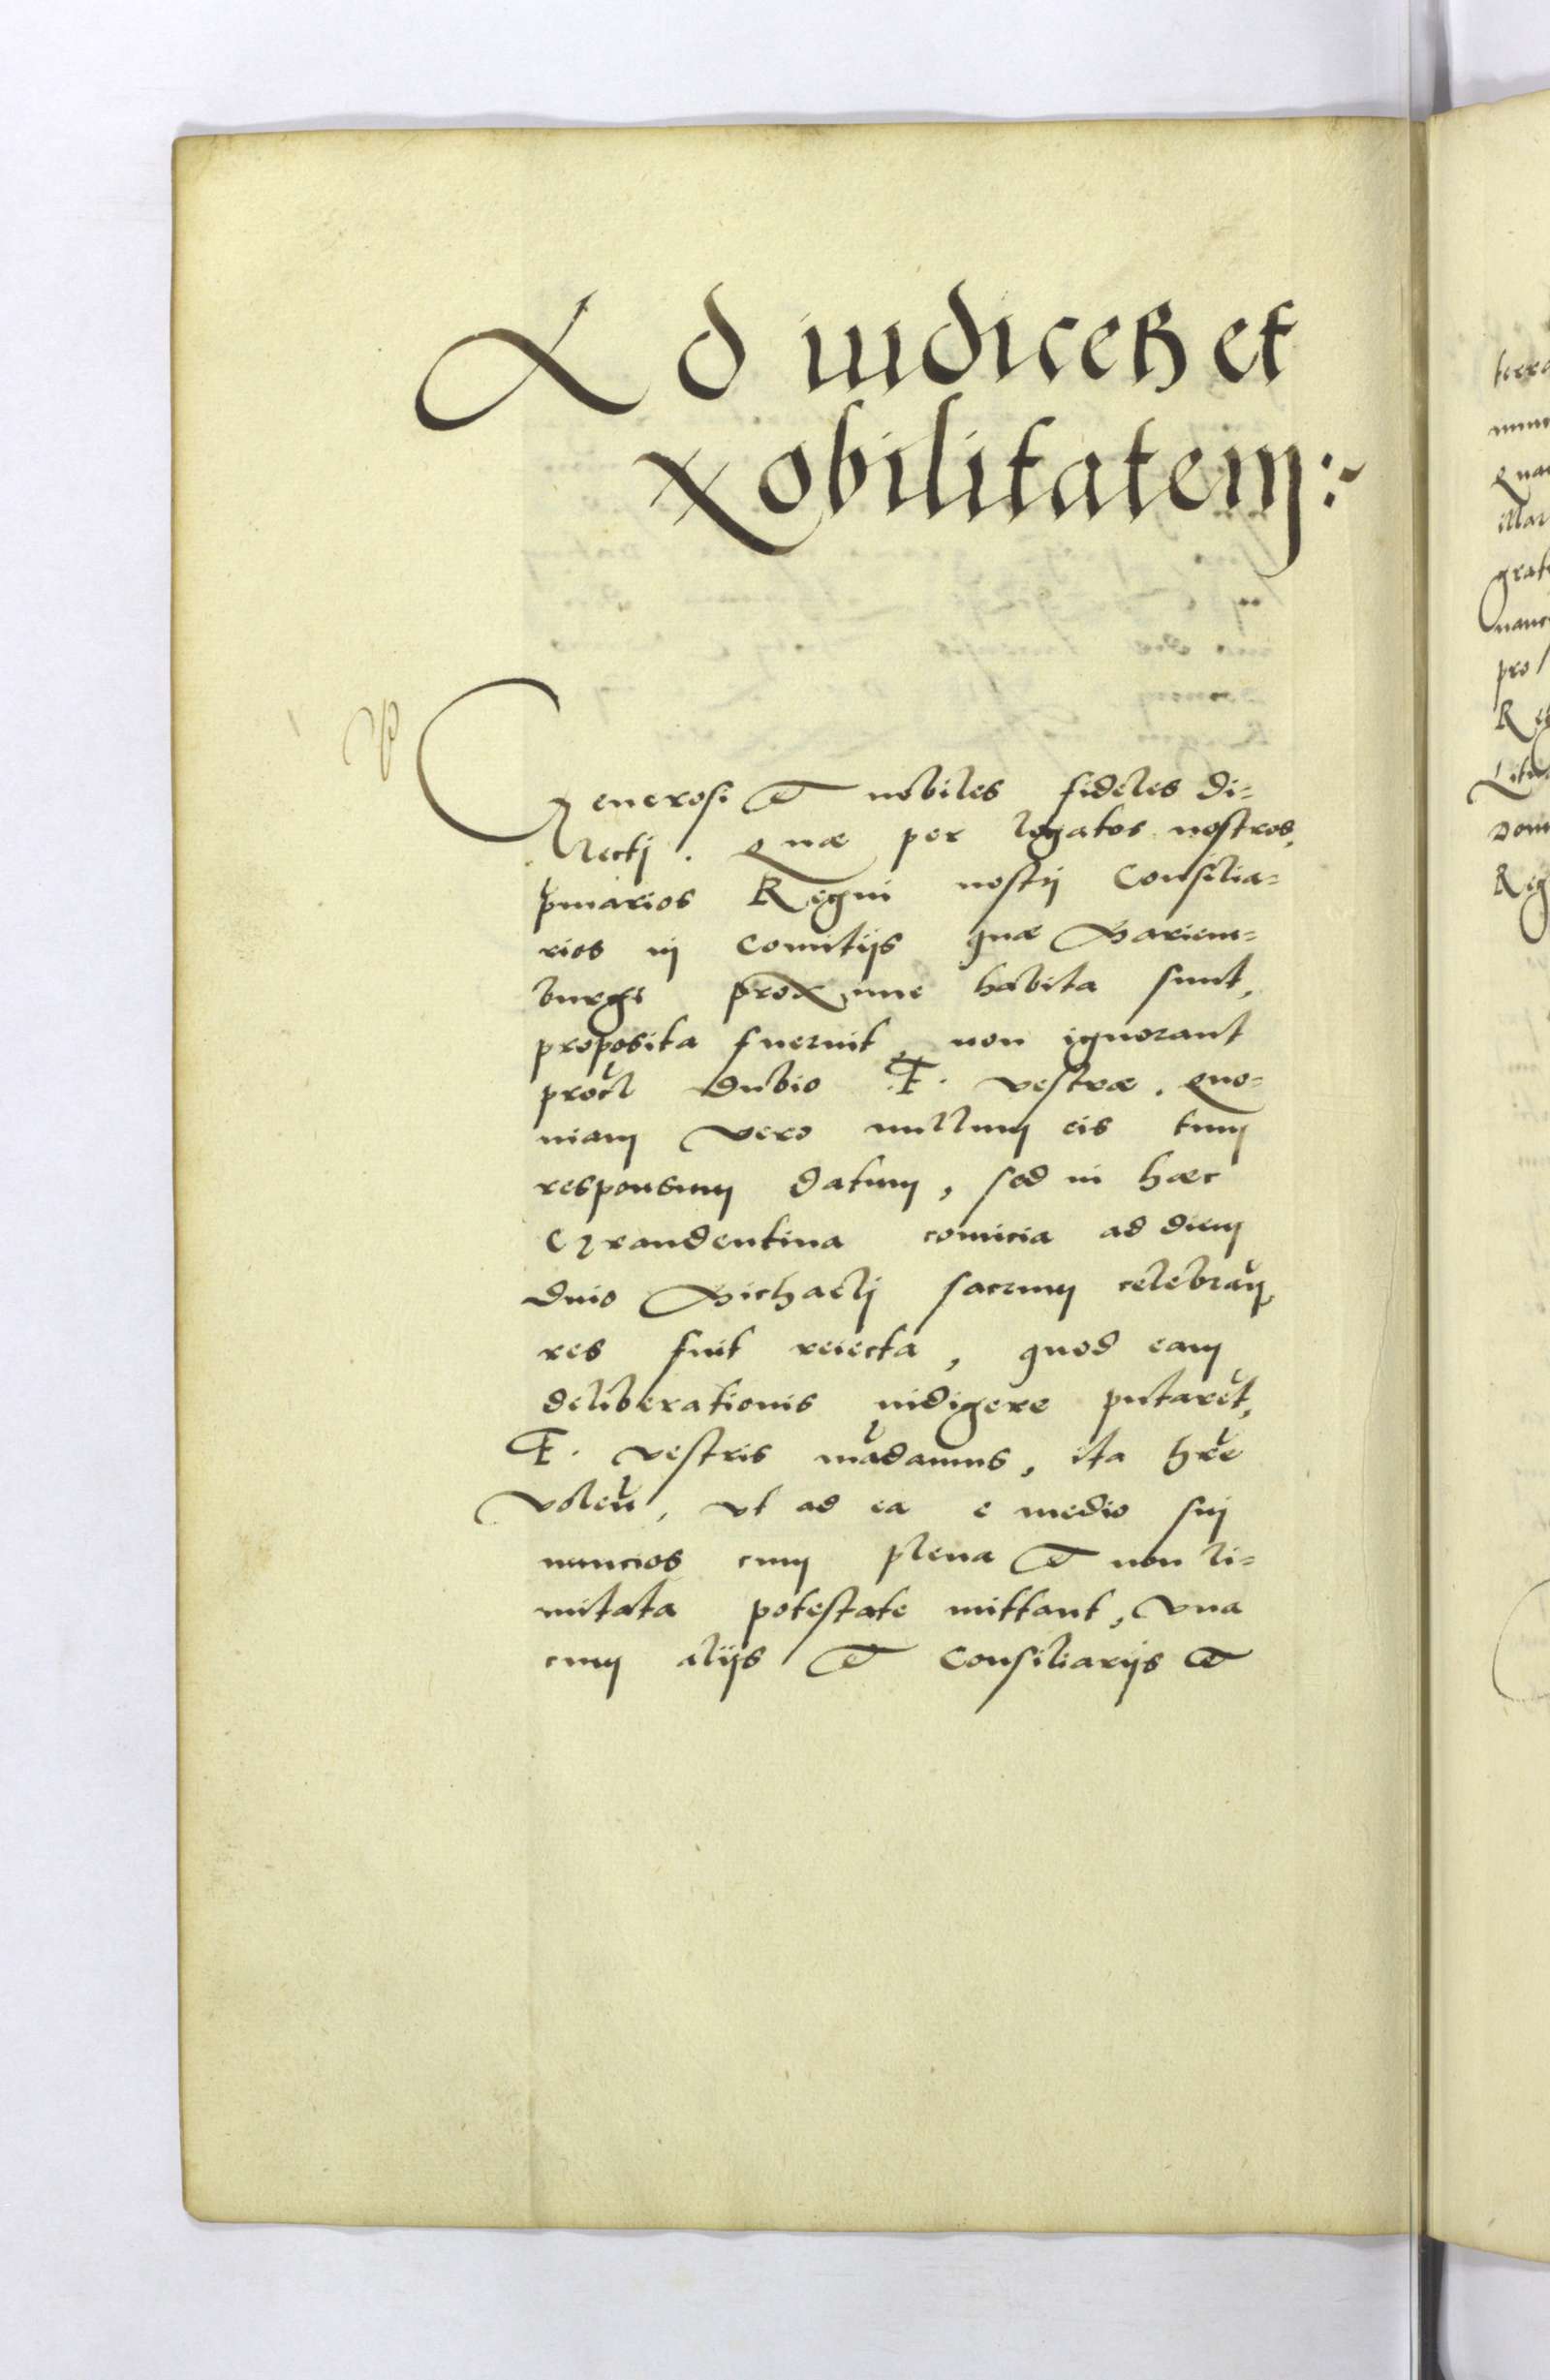 Ad iudices et
Nobilitatem:~
Generosi et nobiles fideles di=
lectj. Quæ per legatos nostros,
pmarios Regni nostrj Consilia=
rios in Comitijs quæ Mariem=
burgi proxime habita sunt,
proposita fuerint, non ignorant
procl dubio F. vestræ. Quo=
niam vero nullum eis tum
responsum datum, sed in hæc
Graudentina comicia ad diem
diuo Michaelj sacrum celebran.
res fuit reiecta, quod eam
deliberationis indigere putaret,
F. vestris madamus, ita hre
volen, vt ad ea e medio suj
nuncios cum plena et non li=
mitata potestate mittant, vna
cum alijs et Consiliarijs et
terra
qua
illar
grat
nanc
pro
Reg
Litu
Dom
Reg